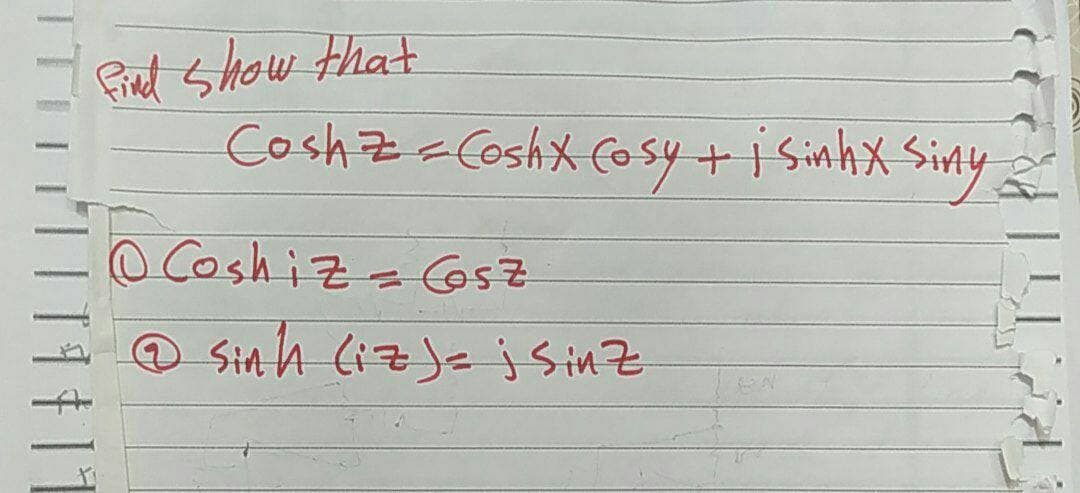 find show that
Cosh z = Coshx Cosy + i sinhx siny
① Cosh iz = Cosz
② sinh (iz) = i sinz